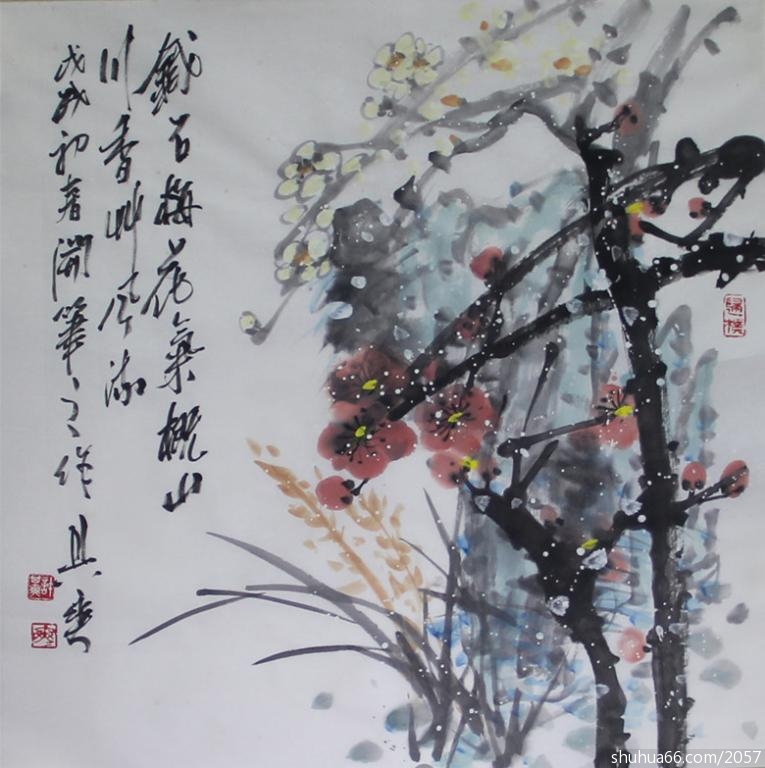 鐵石梅花氣概山
川香艸風流
戊戌初春開筆之作
shuhua66.com/2057